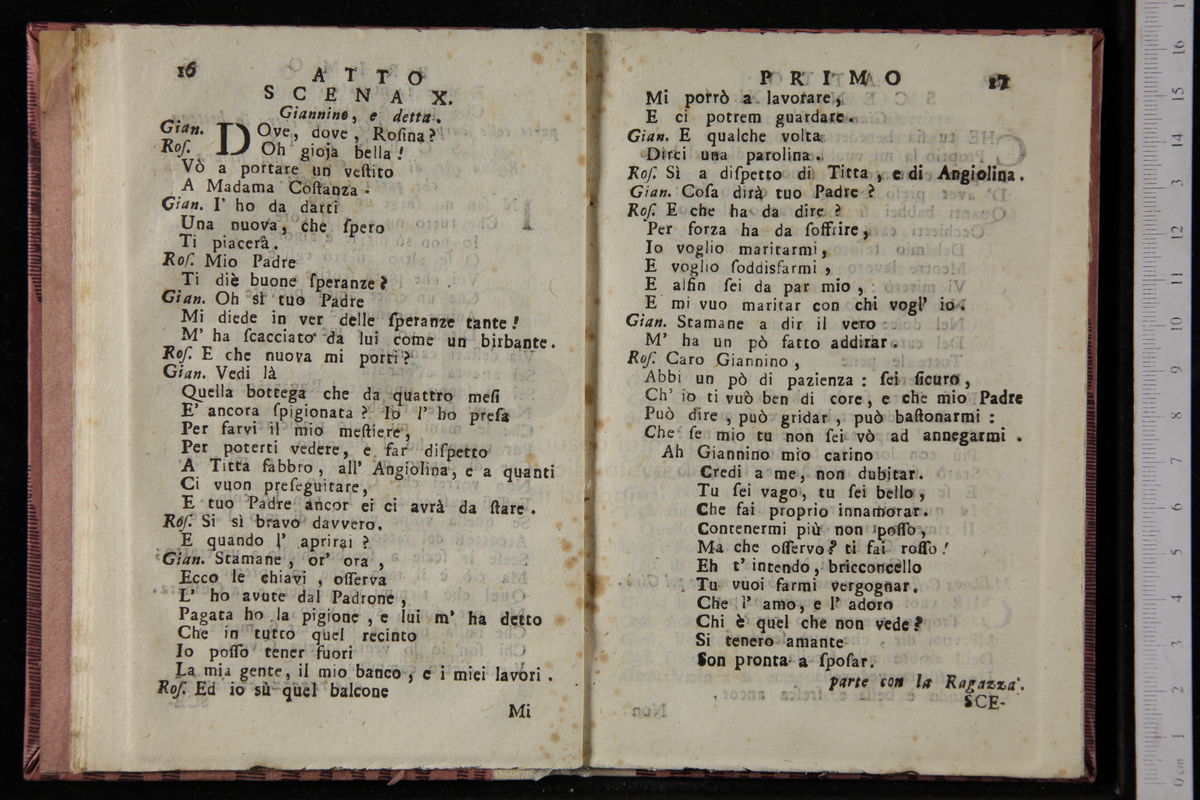 16
ATTO
SCENA X.
Giannino, e detta.
Gian. DOve, dove, Roſina?
Roſ. Oh gioja bella!
Vò a portare un veſtito
A Madama Coſtanza.
Gian. I' ho da darti
Una nuova, che ſpero
Ti piacerà.
Roſ. Mio Padre
Ti diè buone ſperanze?
Gian. Oh sì tuo Padre
Mi diede in ver delle ſperanze tante!
M' ha ſcacciato da lui come un birbante.
Roſ. E che nuova mi porti?
Gian. Vedi là
Quella bottega che da quattro meſi
E' ancora ſpigionata? Io l' ho preſa
Per farvi il mio meſtiere,
Per poterti vedere, e far diſpetto
A Titta fabbro, all' Angiolina, e a quanti
Ci vuon preſeguitare,
E tuo Padre ancor ei ci avrà da ſtare.
Roſ. Si sì bravo davvero.
E quando l' aprirai?
Gian. Stamane, or' ora,
Ecco le chiavi, oſſerva
L' ho avute dal Padrone,
Pagata ho la pigione, e lui m' ha detto
Che in tutto quel recinto
Io poſſo tener fuori
La mia gente, il mio banco, e i miei lavori.
Roſ. Ed io sù quel balcone
Mi
PRIMO
17
Mi porrò a lavorare,
E ci potrem guardare.
Gian. E qualche volta
Dirci una parolina.
Roſ. Sì a diſpetto di Titta, e di Angiolina.
Gian. Coſa dirà tuo Padre?
Roſ. E che ha da dire?
Per forza ha da ſoffrire,
Io voglio maritarmi,
E voglio ſoddisfarmi,
E alfin ſei da par mio,
E mi vuo maritar con chi vogl' io.
Gian. Stamane a dir il vero
M' ha un pò fatto addirar.
Roſ. Caro Giannino,
Abbi un pò di pazienza: ſei ſicuro,
Ch' io ti vuò ben di core, e che mio Padre
Può dire, può gridar, può baſtonarmi:
Che ſe mio tu non ſei vò ad annegarmi.
Ah Giannino mio carino
Credi a me, non dubitar.
Tu ſei vago, tu ſei bello,
Che fai proprio innamorar.
Contenermi più non poſſo,
Ma che oſſervo? ti fai roſſo!
Eh t' intendo, bricconcello
Tu vuoi farmi vergognar.
Che l' amo, e l' adoro
Chi è quel che non vede?
Si tenero amante
Son pronta a ſpoſar.
parte con la Ragazza.
SCE-